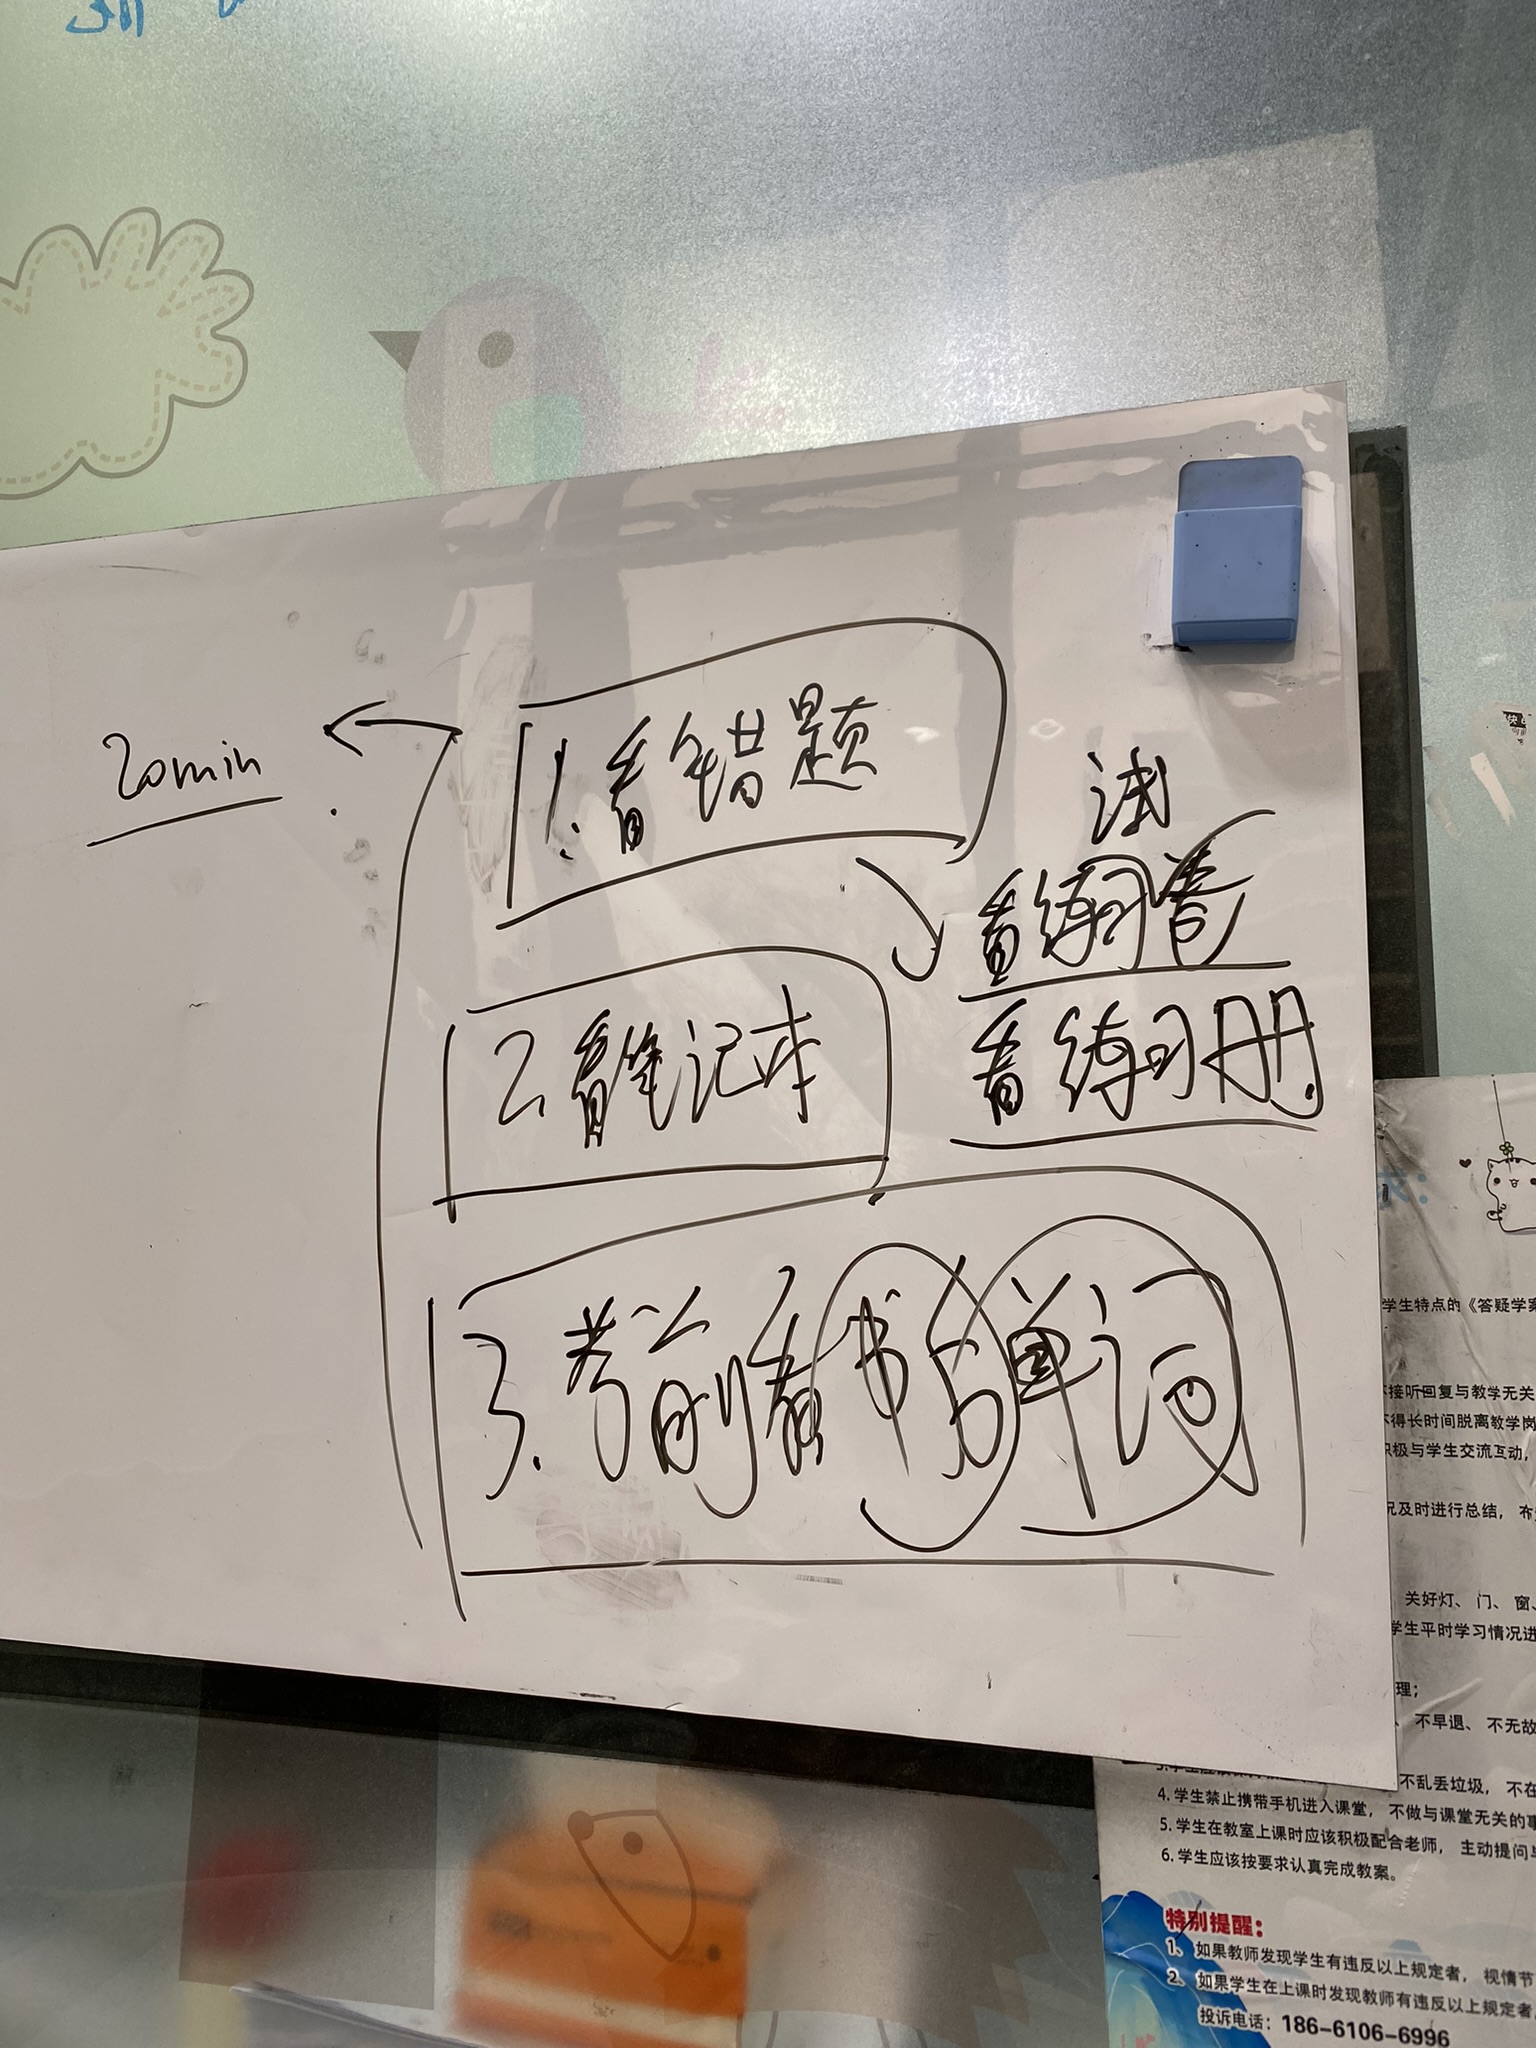 20min
1.看错题
试
看练习卷
看练习册.
2.看笔记本
3.考前看书后单词
学生特点的《答疑学案
接听回复与教学无关
得长时间脱离教学岗
积极与学生交流互动，
况及时进行总结，布
关好灯、门、窗、
学生平时学习情况进
理；
、不早退、不无故
不乱丢垃圾，不在
4.学生禁止携带手机进入课堂，不做与课堂无关的事
5.学生在教室上课时应该积极配合老师，主动提问与
6.学生应该按要求认真完成教案。
特别提醒：
1、如果教师发现学生有违反以上规定者，视情节
2、如果学生在上课时发现教师有违反以上规定者，
投诉电话：186-6106-6996